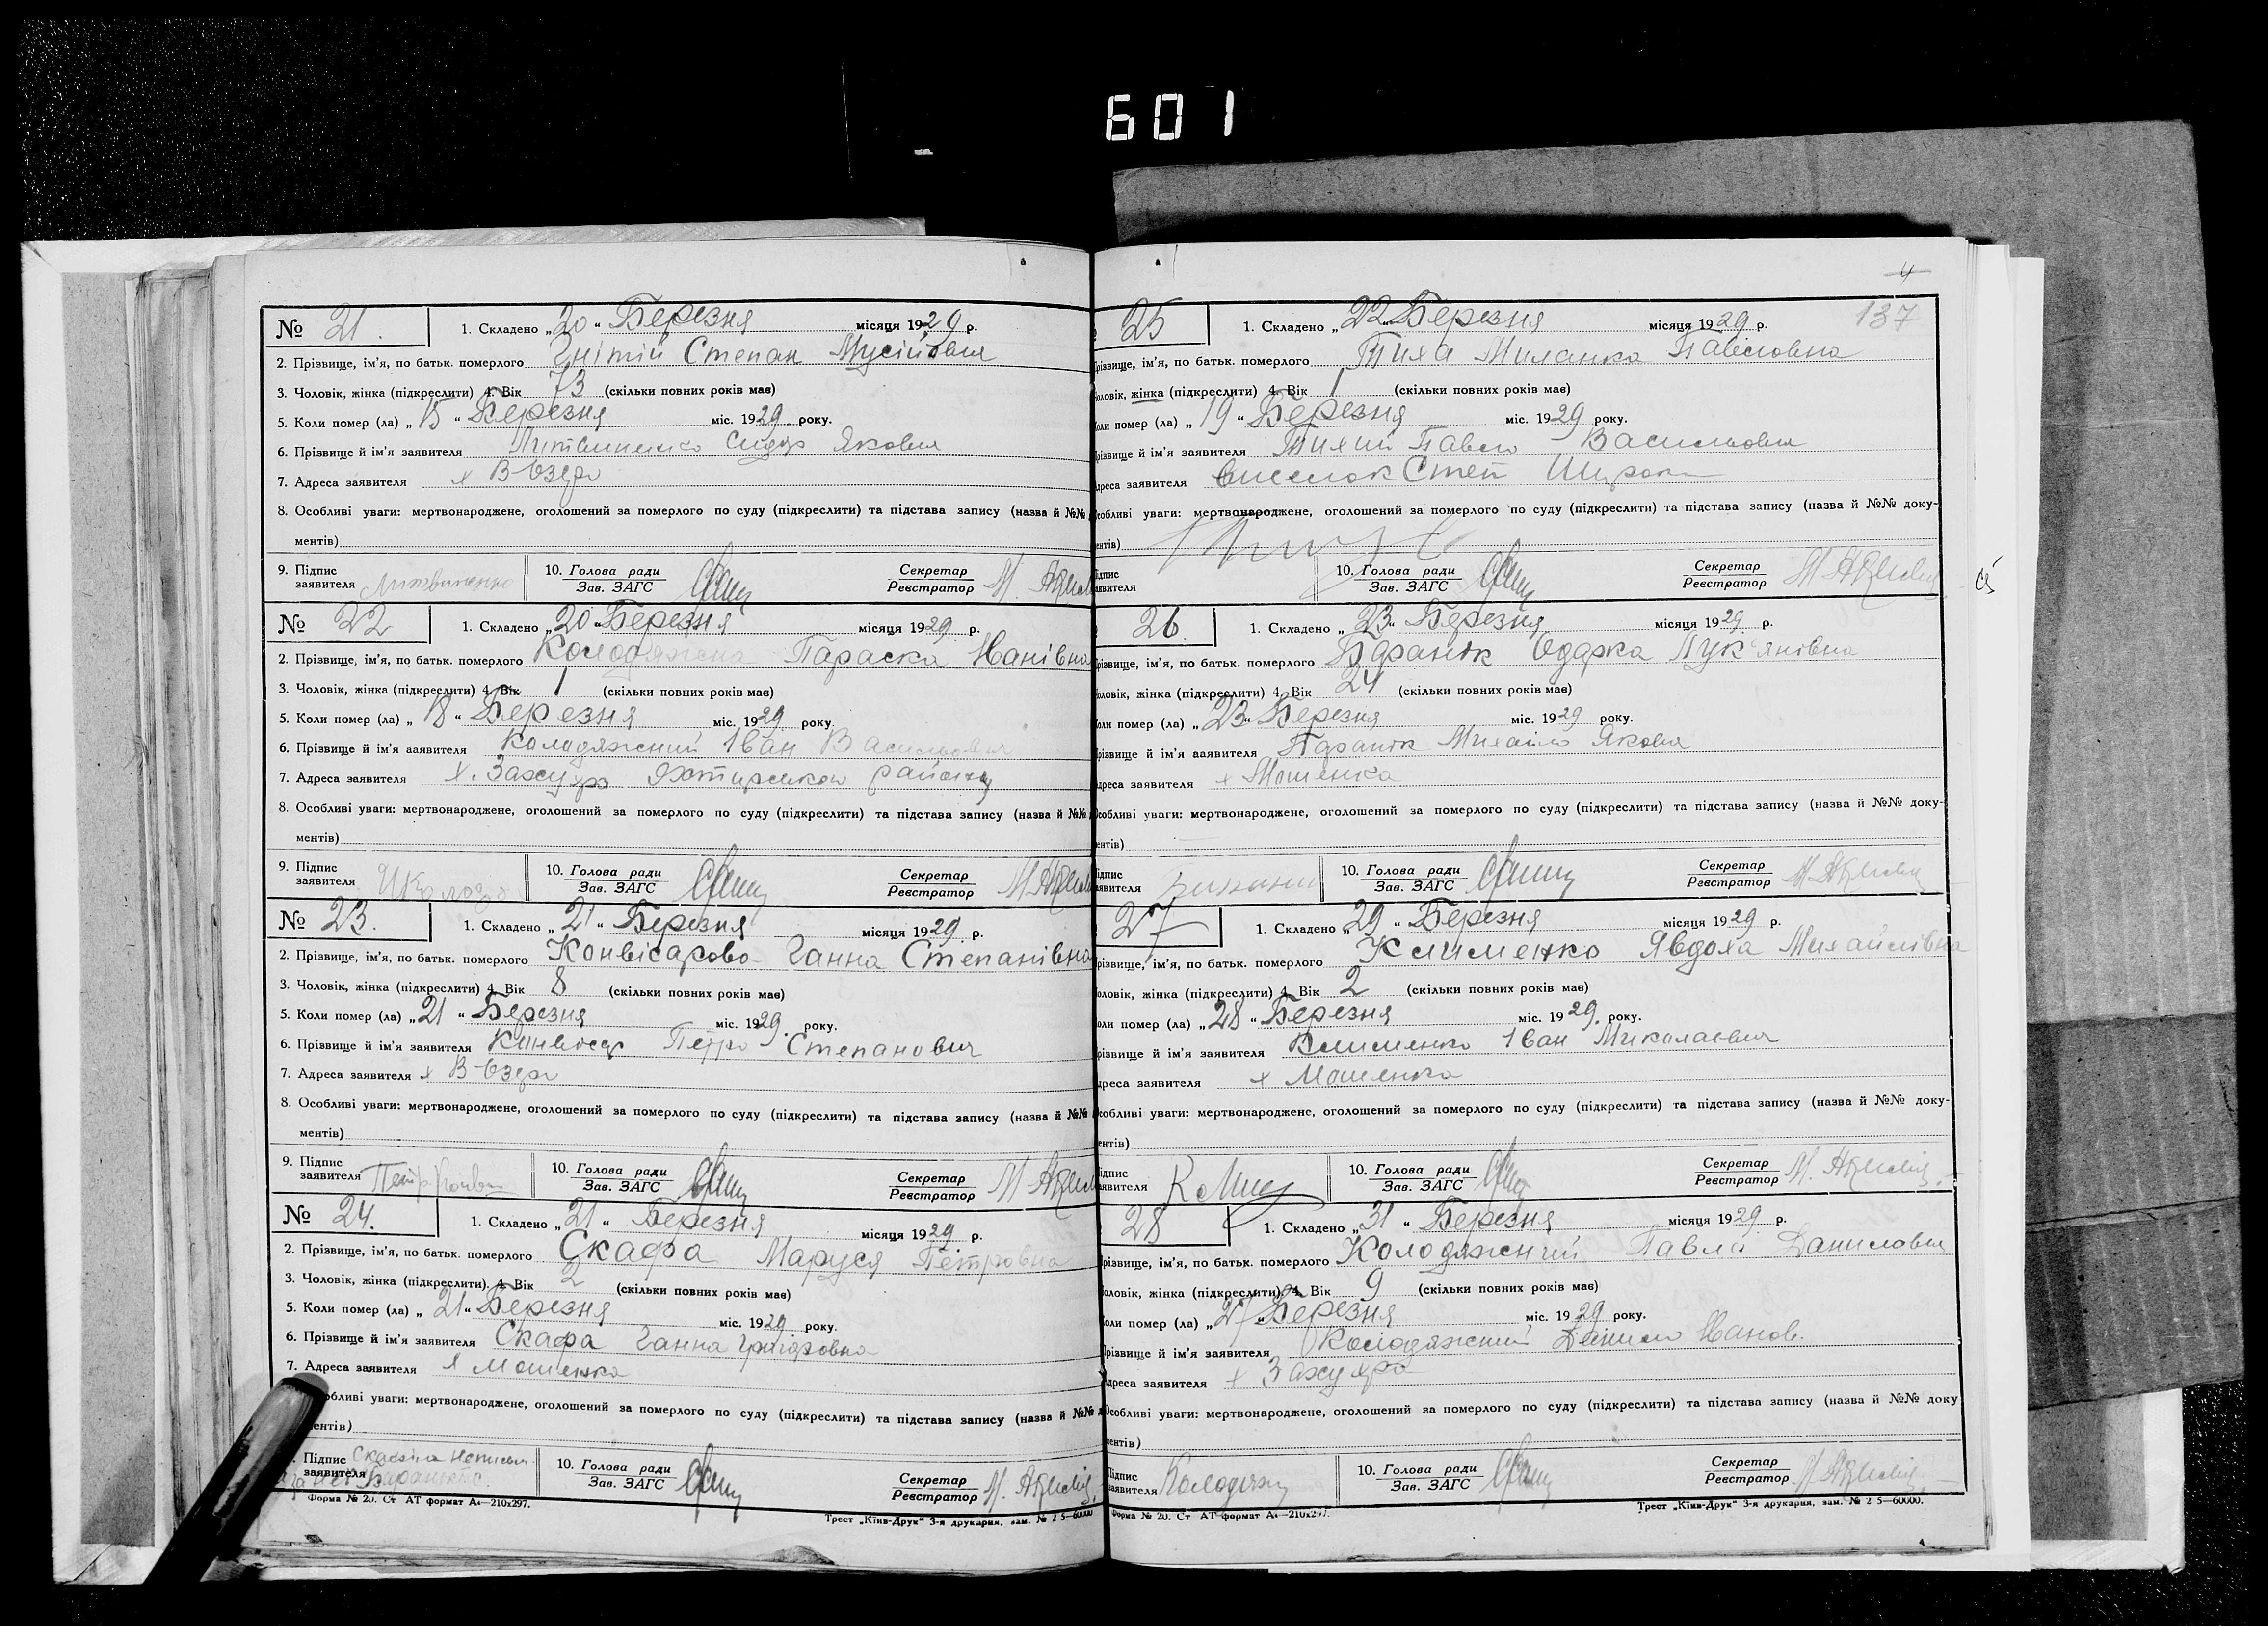 601
№ 21. 1. Складено „20“ Березня місяця 1929 р.
2. Прізвище, ім'я, по батьк. померлого Гнітій Степан Мусійович
3. Чоловік, жінка (підкреслити) 4. Вік 73 (скільки повних років має)
5. Коли помер (ла) „15“ Березня міс. 1929 року.
6. Прізвище й ім'я заявителя Литвиненко Сидір Якович
7. Адреса заявителя х В-Озеро
8. Особливі уваги: мертвонароджене, оголошений за померлого по суду (підкреслити) та підстава запису (назва й №№
ментів)
9. Підпис заявителя Литвиненко 10. Голова ради Зав. ЗАГС Секретар Реєстратор М.
№ 22 1. Складено „20“ Березня місяця 1929 р.
2. Прізвище, ім'я, по батьк. померлого Колодяжна Параска Іванівна
3. Чоловік, жінка (підкреслити) 4. Вік 1 (скільки повних років має)
5. Коли помер (ла) „18“ Березня міс. 1929 року.
6. Прізвище й ім'я заявителя Колодяжний Іван Васильович
7. Адреса заявителя х. Яхтирськой району
8. Особливі уваги: мертвонароджене, оголошений за померлого по суду (підкреслити) та підстава запису (назва й №№
ментів)
9. Підпис заявителя 10. Голова ради Зав. ЗАГС Секретар Реєстратор М
№ 23. 1. Складено „21“ Березня місяця 1929 р.
2. Прізвище, ім'я, по батьк. померлого Конвісарово Ганна Степанівна
3. Чоловік, жінка (підкреслити) 4. Вік 8 (скільки повних років має)
5. Коли помер (ла) „21“ Березня міс. 1929. року.
6. Прізвище й ім'я заявителя Петро Степанович
7. Адреса заявителя х В-Озеро
8. Особливі уваги: мертвонароджене, оголошений за померлого по суду (підкреслити) та підстава запису (назва й №№
ментів)
9. Підпис заявителя 10. Голова ради Зав. ЗАГС Секретар Реєстратор М
№ 24. 1. Складено „21“ Березня місяця 1929 р.
2. Прізвище, ім'я, по батьк. померлого Скафа Маруся Петровна
3. Чоловік, жінка (підкреслити) 4. Вік 2 (скільки повних років має)
5. Коли помер (ла) „21“ Березня міс. 1929 року.
6. Прізвище й ім'я заявителя Скафа Ганна Григоровна
7. Адреса заявителя х Мошенка
обливі уваги: мертвонароджене, оголошений за померлого по суду (підкреслити) та підстава запису (назва й №№
ментів)
Підпис заявителя 10. Голова ради Зав. ЗАГС Секретар Реєстратор М.
Форма № 20. Ст АТ формат А4—210х297.
Трест „Київ-Друк“ 3-я друкарня, зам. № 2 5—60000
4
137
25 1. Складено „22“ Березня місяця 1929 р.
різвище, ім'я, по батьк. померлого Тиха Миланка Павловна
оловік, жінка (підкреслити) 4. Вік 1 (скільки повних років має)
оли помер (ла) „19“ Березня міс. 1929 року.
різвище й ім'я заявителя Тихий Павло Васильович
дреса заявителя Виселок Степ
собливі уваги: мертвонароджене, оголошений за померлого по суду (підкреслити) та підстава запису (назва й №№ доку-
ентів)
ідпис аявителя 10. Голова ради Зав. ЗАГС Секретар Реєстратор М
26. 1. Складено „23“ Березня місяця 1929 р.
різвище, ім'я, по батьк. померлого Одарка Лук'янівна
оловік, жінка (підкреслити) 4. Вік 24 (скільки повних років має)
оли помер (ла) „23“ Березня міс. 1929 року.
різвище й ім'я заявителя Михайло Якович
дреса заявителя х Мошенка
собливі уваги: мертвонароджене, оголошений за померлого по суду (підкреслити) та підстава запису (назва й №№ доку-
ентів)
ідпис аявителя 10. Голова ради Зав. ЗАГС Секретар Реєстратор М
27 1. Складено „29“ Березня місяця 1929 р.
різвище, ім'я, по батьк. померлого Клименко Явдоха Михайлівна
оловік, жінка (підкреслити) 4. Вік 2 (скільки повних років має)
оли помер (ла) „28“ Березня міс. 1929. року.
різвище й ім'я заявителя Клименко Іван Миколаєвич
дреса заявителя х Мошенка
собливі уваги: мертвонароджене, оголошений за померлого по суду (підкреслити) та підстава запису (назва й №№ доку-
ентів)
ідпис аявителя 10. Голова ради Зав. ЗАГС Секретар Реєстратор М.
28 1. Складено „31“ Березня місяця 1929 р.
різвище, ім'я, по батьк. померлого Колодяжний Павло Данилович
оловік, жінка (підкреслити) 4. Вік 9 (скільки повних років має)
оли помер (ла) „27“ Березня міс. 1929 року.
різвище й ім'я заявителя Колодяжний Данило Іванов.
дреса заявителя х
Особливі уваги: мертвонароджене, оголошений за померлого по суду (підкреслити) та підстава запису (назва й №№ доку
ентів)
ідпис аявителя 10. Голова ради Зав. ЗАГС Секретар Реєстратор
Форма № 20. Ст АТ формат А4—210х297.
Трест „Київ-Друк“ 3-я друкарня, зам. № 2 5—60000.